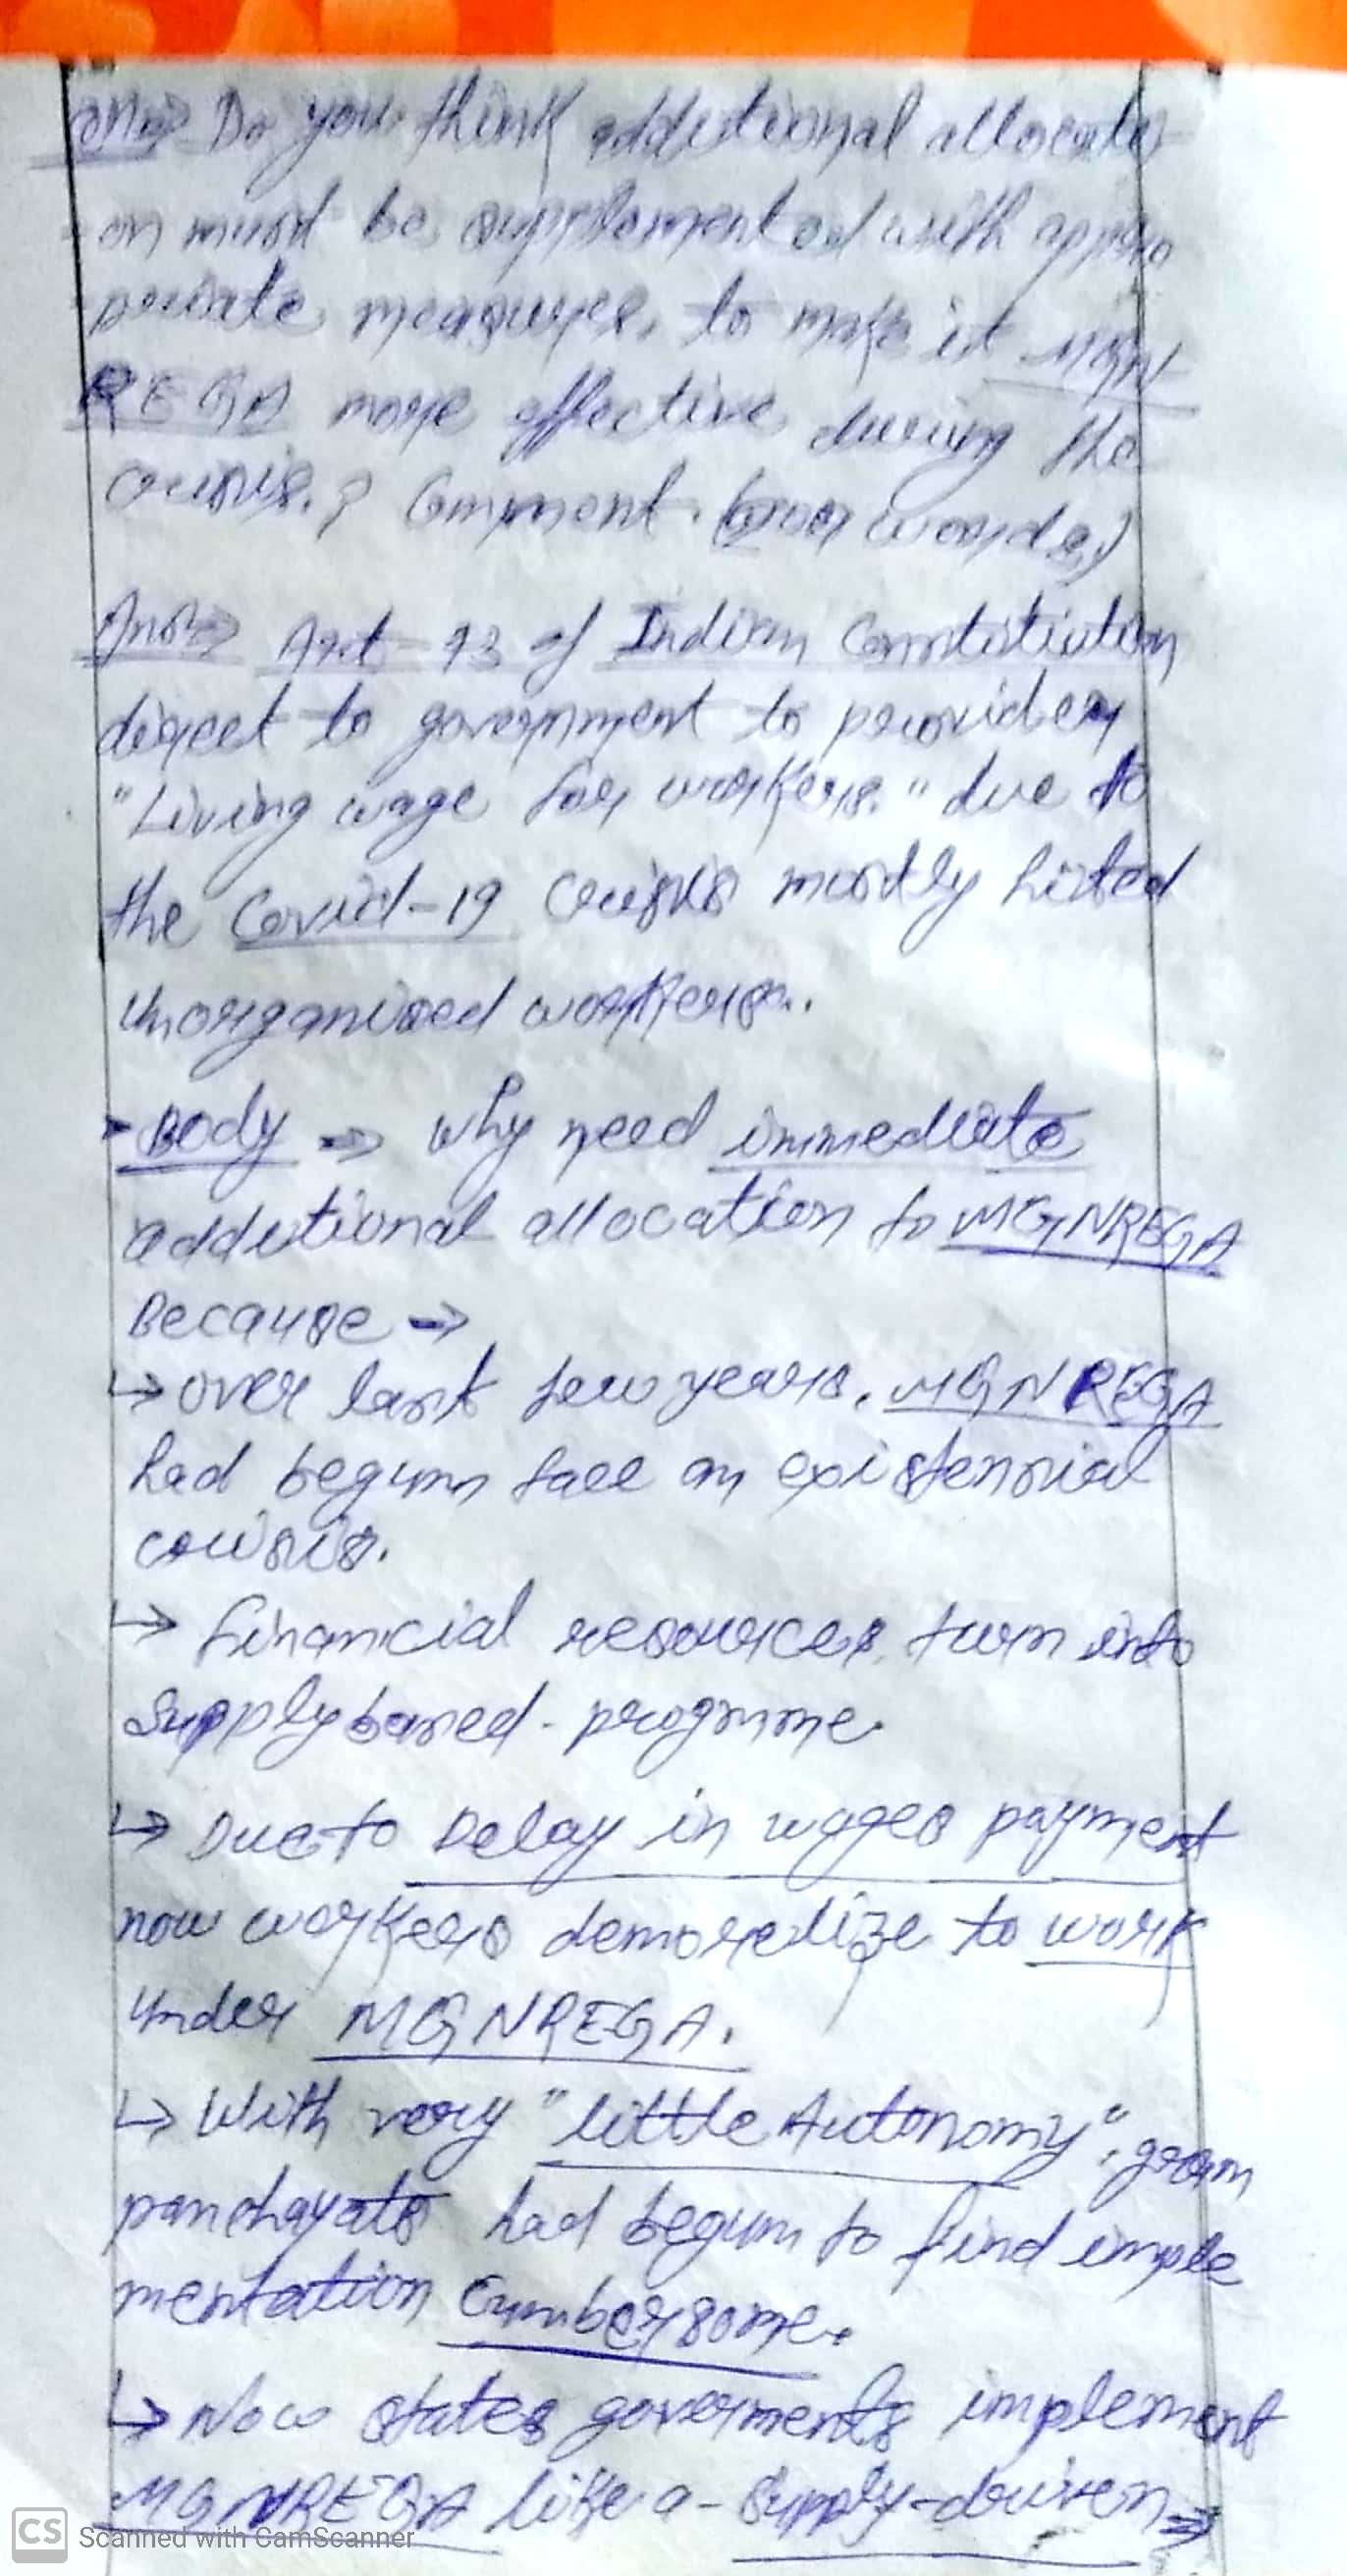 Do you think additional allocati
on must be supplemented with appro
priate measures, to make it MGN
REGA more effective during the
crisis.? Comment. words)
Ans⇒ Art 43 of Indian Constitution
direct to government to provide
"Living wage for workers." due to
the Covid-19 crisis mostly hitted
unorganised workers.
Body ⇒ why need immediate
additional allocation to MGNREGA
Because →
↳ over last few years, MGNREGA
had begun face an existensial
crisis.
↳ financial resources turn into
supply based - progmme.
↳ Due to Delay in wages payment
now workers demoralize to work
under MGNREGA.
↳ With very "little Autonomy", gram
panchayats had begun to find imple
mentation Cumbersome.
↳ Now states goverments implement
MGNREGA like a - supply-driven ⇒
CS Scanned with CamScanner